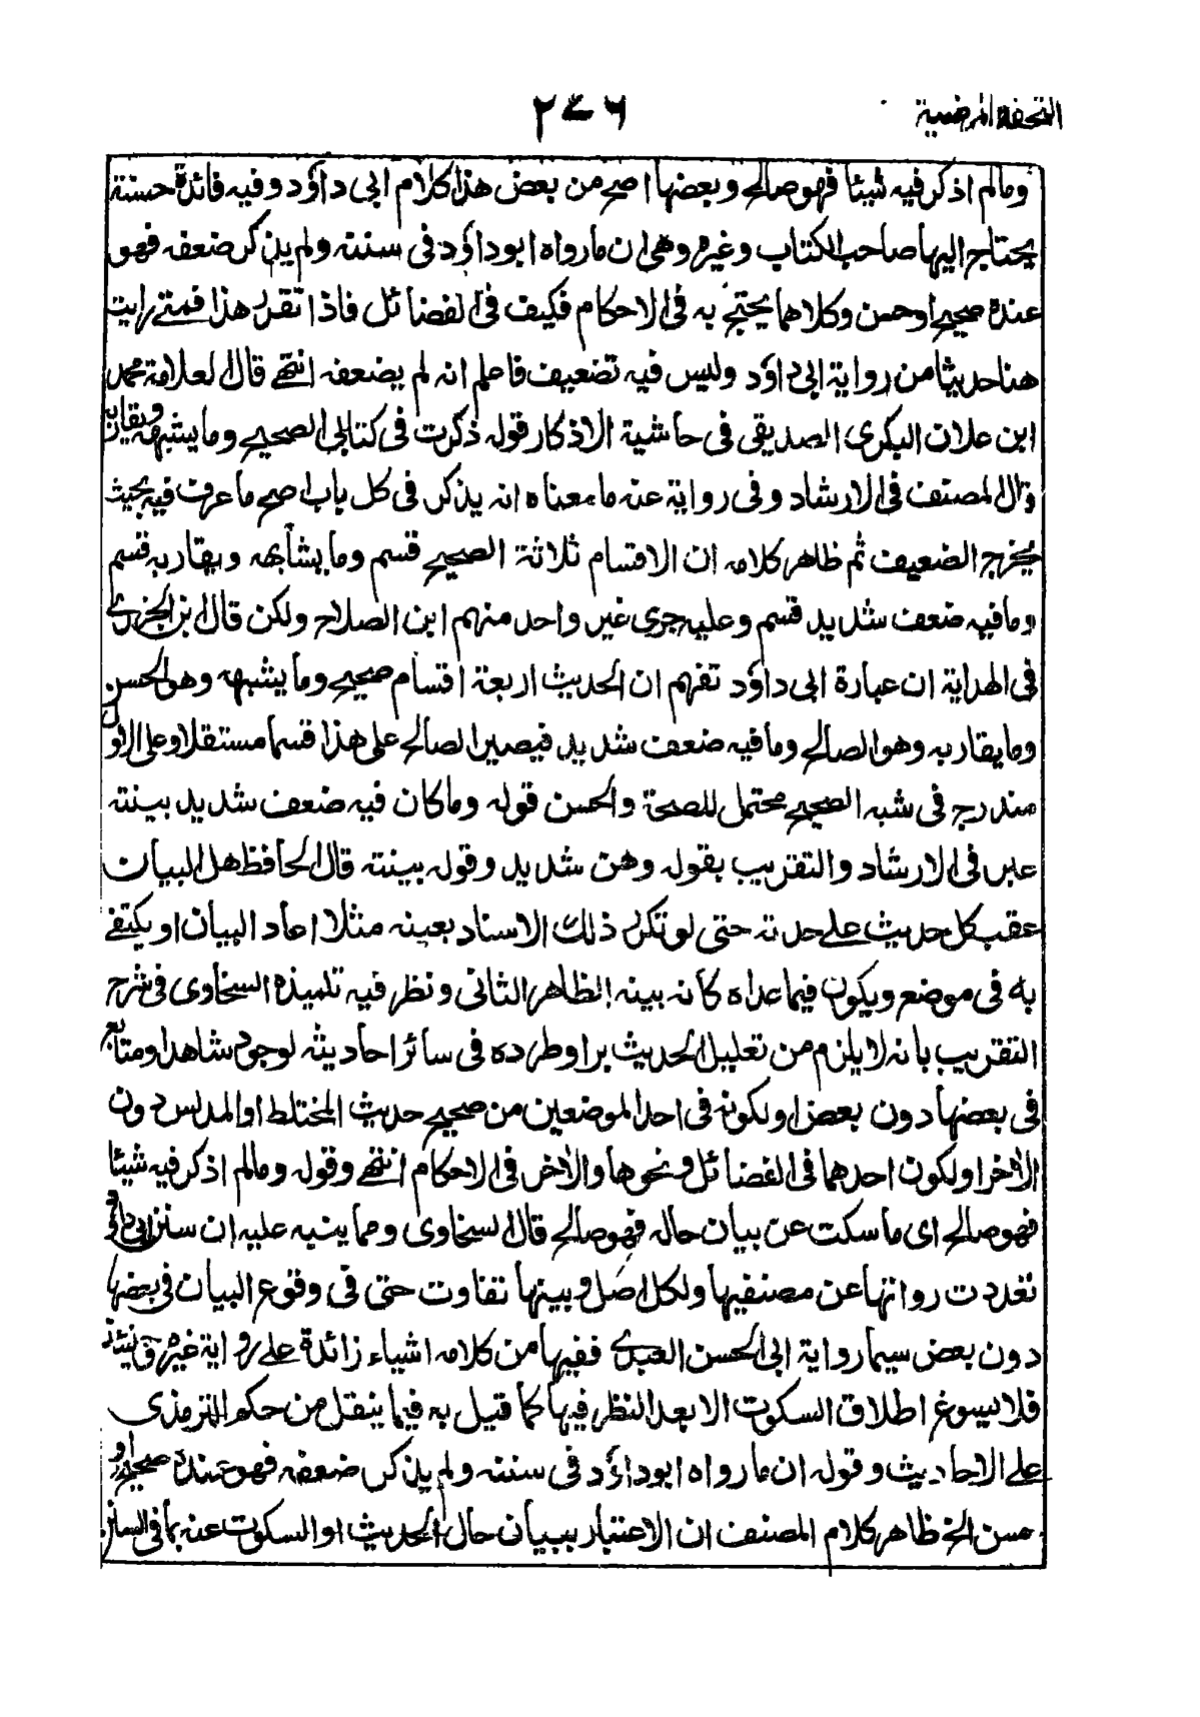 التحفة المرضية
۲۷۶
ومالم اذكر فيه شيئا فهو صالح وبعضها اصح من بعض هذا كلام ابى داؤد وفيه فائدة حسنة
يحتاج اليها صاحب الكتاب وغيره وهى ان ما رواه ابوداؤد فى سننه ولم يذكر ضعفه فهو
عنده صحيح او حسن وكلاهما يحتج به فى الاحكام فكيف فى الفضائل فاذا تقرر هذا فمتى رايت
هنا حديثا من رواية ابى داؤد وليس فيه تضعيف فاعلم انه لم يضعفه انتهى قال العلامة محمد
ابن علان البكرى الصديقى فى حاشية الاذكار قوله ذكرت فى كتابى الصحيح وما يشبهه ويقاربه
قال المصنف فى الارشاد وفى رواية عنه ما معناه انه يذكر فى كل باب اصح ما عرف فيه بحيث
يخرج الضعيف ثم ظاهر كلامه ان الاقسام ثلاثة الصحيح قسم وما يشابهه ويقاربه قسم
وما فيه ضعف شديد قسم وعليه جرى غير واحد منهم ابن الصلاح ولكن قال ابن الجزرى
فى الهداية ان عبارة ابى داؤد تفهم ان الحديث اربعة اقسام صحيح وما يشبهه وهو الحسن
وما يقاربه وهو الصالح وما فيه ضعف شديد فيصير الصالح على هذا قسما مستقلا وعلى الاول
مندرج فى شبه الصحيح محتمل للصحة والحسن قوله وما كان فيه ضعف شديد بينته
عبر فى الارشاد والتقريب بقوله وهن شديد وقوله بينته قال الحافظ هل البيان
عقب كل حديث على حدته حتى لو تكرر ذلك الاسناد بعينه مثلا اعاد البيان او يكتفى
به فى موضع ويكون فيما عداه كانه بينه الظاهر الثانى ونظر فيه تلميذه السخاوى فى شرح
التقريب بانه لا يلزم من تعليل الحديث براو طرده فى سائر احاديثه لوجود شاهد او متابع
فى بعضها دون بعض او لكونه فى احد الموضعين من صحيح حديث المختلط او المدلس دون
الاخر او لكون احدهما فى الفضائل ونحوها والاخر فى الاحكام انتهى وقوله ومالم اذكر فيه شيئا
فهو صالح اى ما سكت عن بيان حاله فهو صالح قال السخاوى ومما ينبه عليه ان سنن ابى داؤد
تعددت رواتها عن مصنفيها ولكل اصل وبينها تفاوت حتى فى وقوع البيان فى بعضها
دون بعض سيما رواية ابى الحسن العبدى ففيها من كلامه اشياء زائدة على رواية غيره فحينئذ
فلا يسوغ اطلاق السكوت الا بعد النظر فيها كما قيل به فيما ينقل من حكم الترمذى
على الاحاديث وقوله ان ما رواه ابوداؤد فى سننه ولم يذكر ضعفه فهو عنده صحيح او
حسن الخ ظاهر كلام المصنف ان الاعتبار ببيان حال الحديث او السكوت عنه بما فى السنن